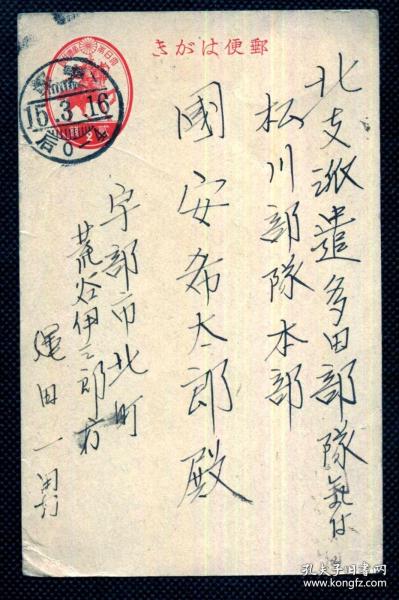 きがは便郵
北支派遣多田部隊氣付
松川部隊本部
國安希太郎殿
宇部市北町
荒谷伊三郎方
田一
15.3.16
孔夫子旧书网
www.kongfz.com